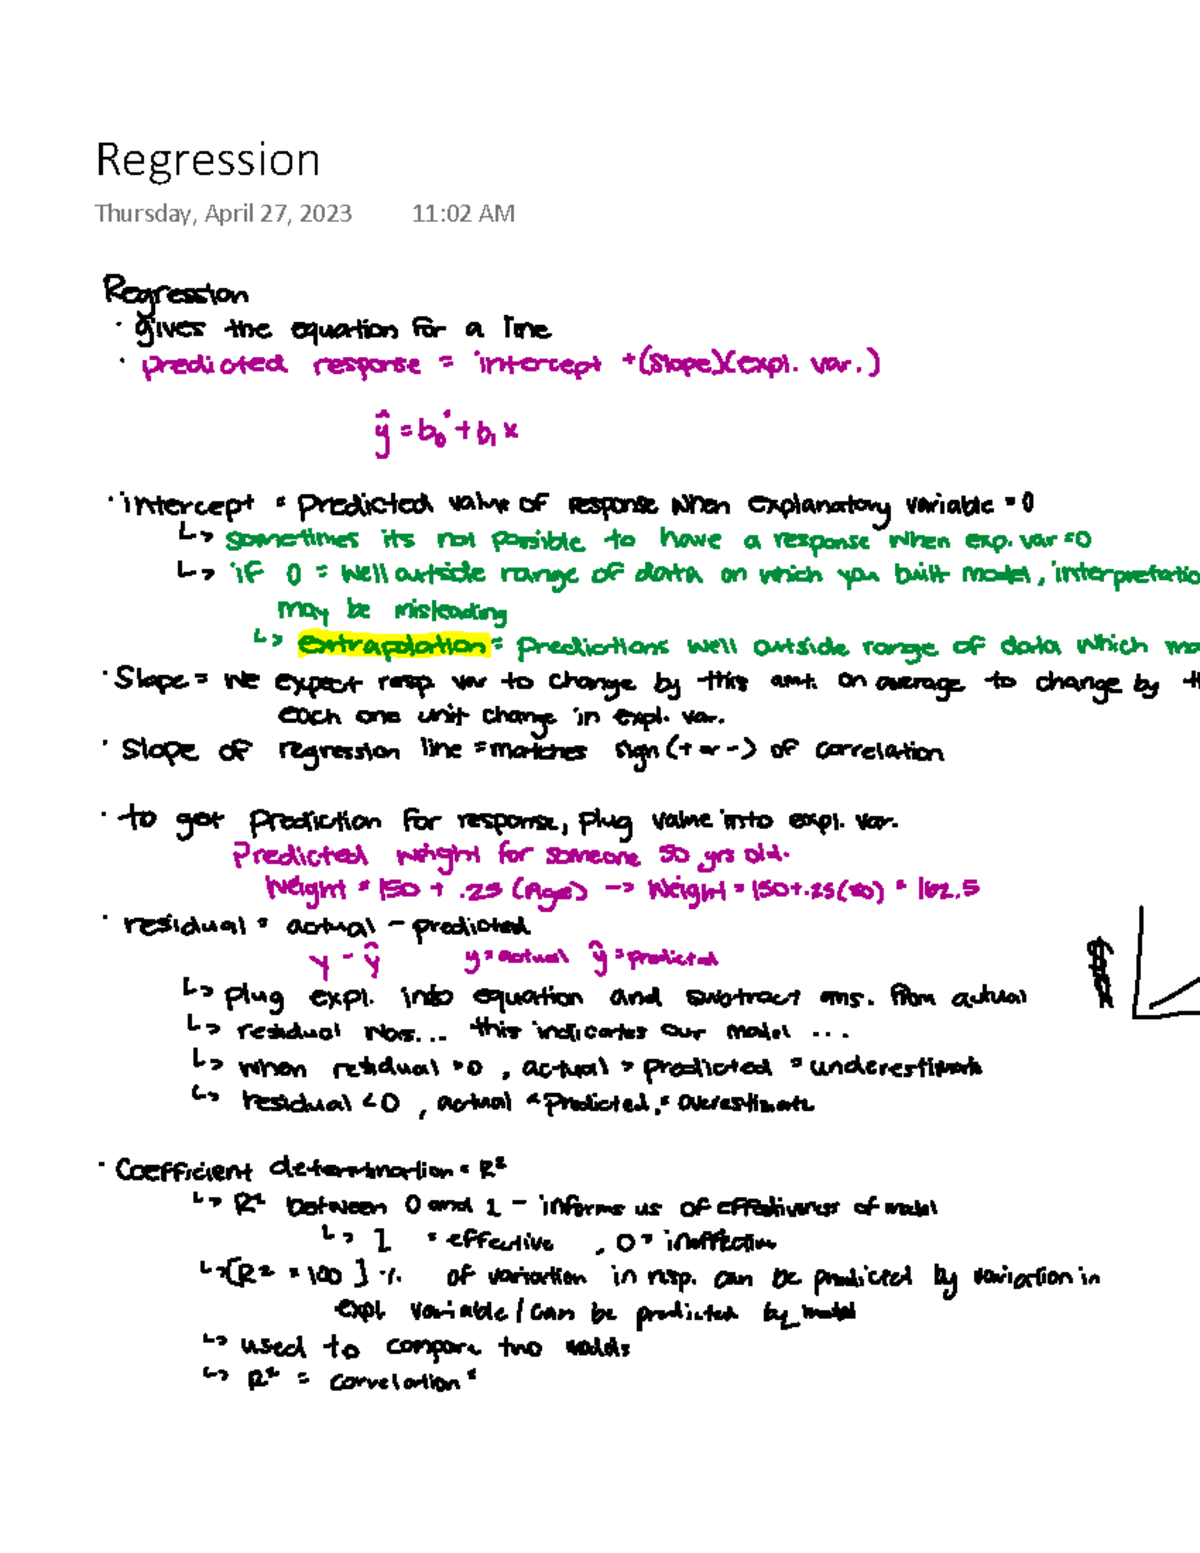 Regression
Thursday, April 27, 2023 11:02 AM
Regression
· gives the equation for a line
· predicted response = intercept + (slope)(expl. var.)
ŷ = b₀ + b₁ x
· intercept = predicted value of response when explanatory variable = 0
↳ sometimes its not possible to have a response when exp. var = 0
↳ if 0 = well outside range of data on which you built model, interpretatio
may be misleading
↳ extrapolation = predictions well outside range of data which ma
· Slope = we expect resp. var to change by this amt. on average to change by th
each one unit change in expl. var.
· Slope of regression line = matches sign (+ or -) of correlation
· to get prediction for response, plug value into expl. var.
Predicted weight for someone 50 yrs old.
Weight = 150 + .25 (Age) → Weight = 150+.25(50) = 162.5
· residual = actual - predicted
y - ŷ y = actual ŷ = predicted
↳ plug expl. into equation and subtract ans. from actual
↳ residual was... this indicates our model ...
↳ when residual > 0, actual > predicted = underestimate
↳ residual < 0, actual < predicted, = overestimate
· Coefficient determination = R²
↳ R² between 0 and 1 - informs us of effectiveness of model
↳ 1 = effective, 0 = ineffective
↳ [R² * 100] % of variation in resp. can be predicted by variation in
expl. variable / can be predicted by model
↳ used to compare two models
↳ R² = correlation²